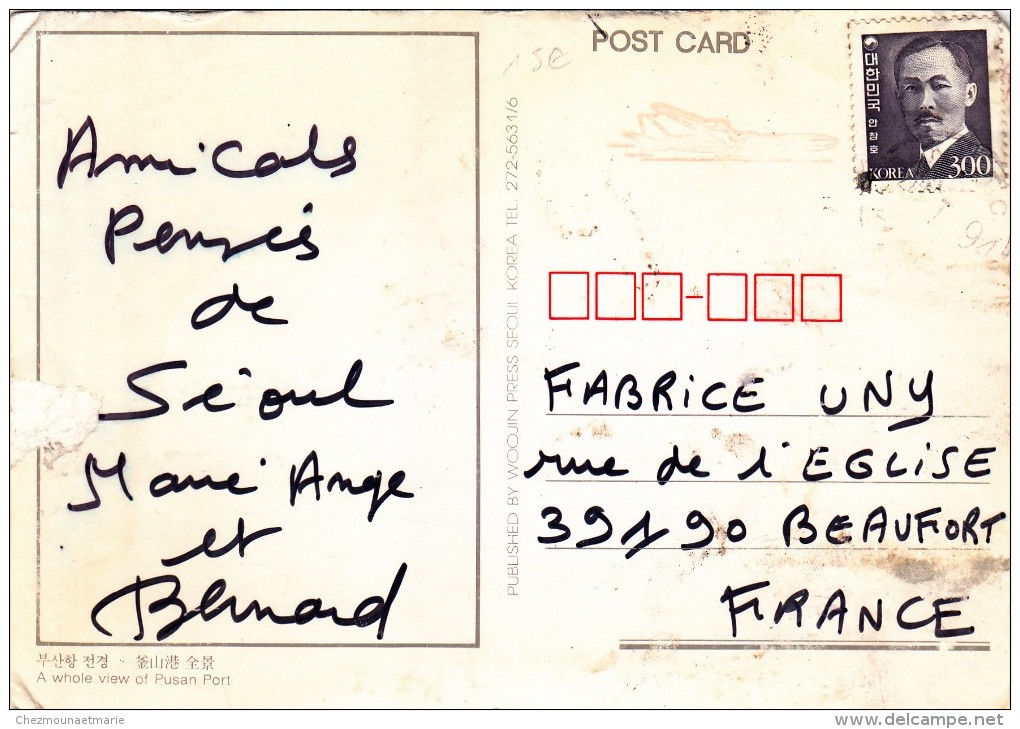 POST CARD
1SE
대한민국 안창호
KOREA 300
Amicals
Pensés
de
Séoul
Marie Ange
et
Bernard
PUBLISHED BY WOOJIN PRESS SEOUL KOREA TEL. 272-5631/6
FABRICE UNY
rue de l'EGLISE
39190 BEAUFORT
FRANCE
부산항 전경 · 釜山港 全景
A whole view of Pusan Port
Chezmounaetmarie
www.delcampe.net